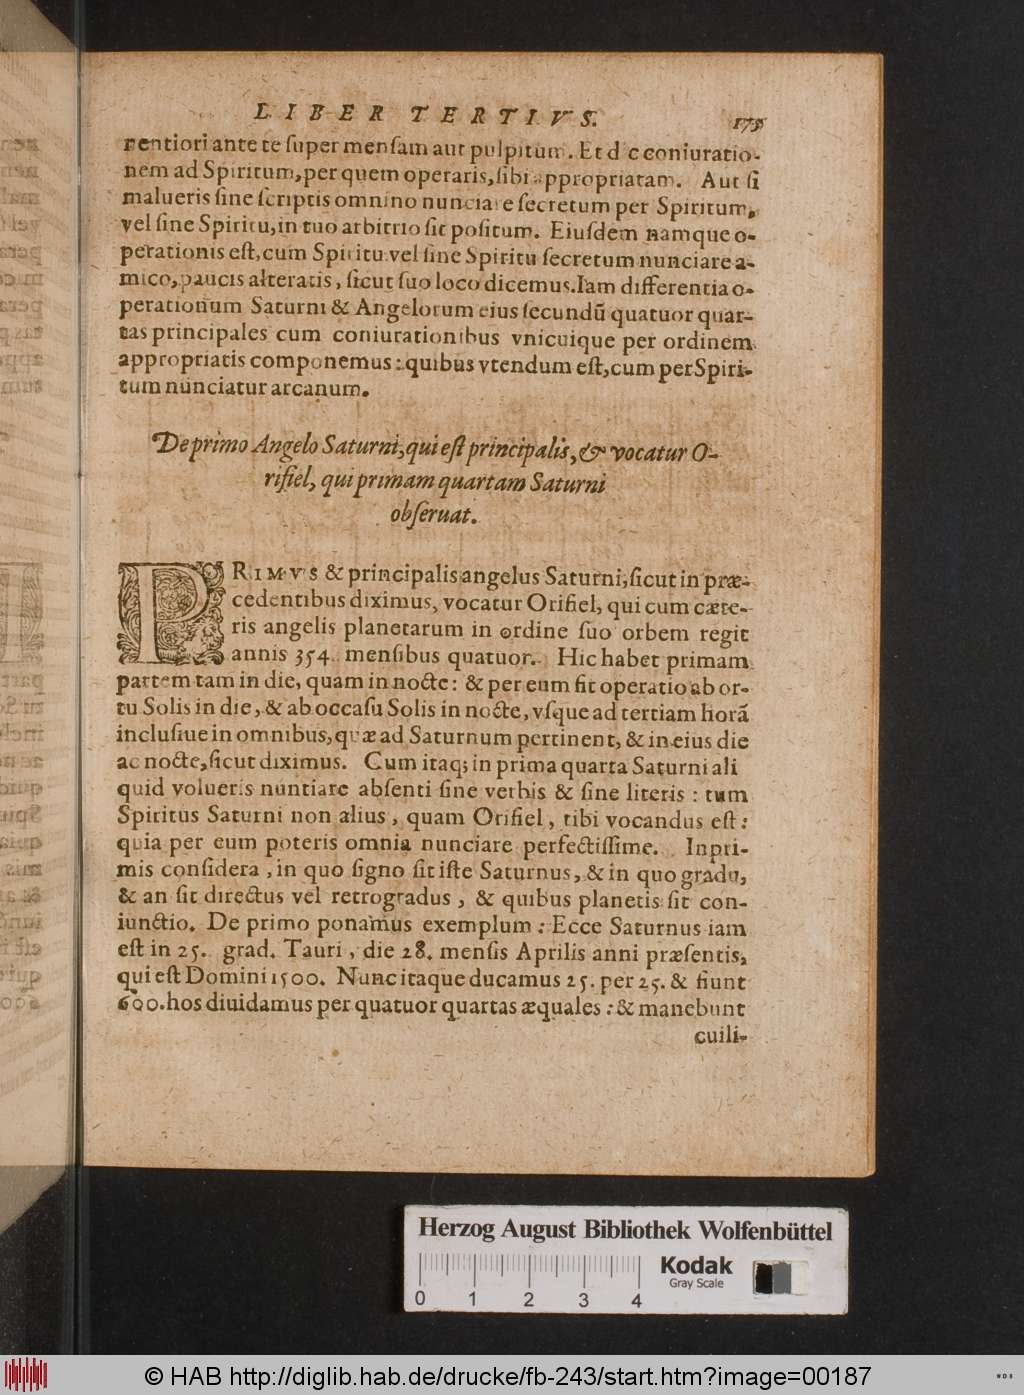 LIBER TERTIVS. 175
rentiori ante te ſuper menſam aut pulpitum. Et dic coniuratio-
nem ad Spiritum, per quem operaris, ſibi appropriatam. Aut ſi
malueris ſine ſcriptis omnino nunciare ſecretum per Spiritum,
vel ſine Spiritu, in tuo arbitrio ſit poſitum. Eiuſdem namque o-
perationis eſt, cum Spiritu vel ſine Spiritu ſecretum nunciare a-
mico, paucis alteratis, ſicut ſuo loco dicemus. Iam differentia o-
perationum Saturni & Angelorum eius ſecundū quatuor quar-
tas principales cum coniurationibus vnicuique per ordinem
appropriatis componemus: quibus vtendum eſt, cum per Spiri-
tum nunciatur arcanum.
De primo Angelo Saturni, qui eſt principalis, & vocatur O-
rifiel, qui primam quartam Saturni
obſeruat.
PRIMVS & principalis angelus Saturni, ſicut in præ-
cedentibus diximus, vocatur Orifiel, qui cum cæte-
ris angelis planetarum in ordine ſuo orbem regit
annis 354. menſibus quatuor. Hic habet primam
partem tam in die, quam in nocte: & per eum fit operatio ab or-
tu Solis in die, & ab occaſu Solis in nocte, vſque ad tertiam horā
incluſiue in omnibus, quæ ad Saturnum pertinent, & in eius die
ac nocte, ſicut diximus. Cum itaq; in prima quarta Saturni ali
quid volueris nuntiare abſenti ſine verbis & ſine literis: tum
Spiritus Saturni non alius, quam Orifiel, tibi vocandus eſt:
quia per eum poteris omnia nunciare perfectiſſime. Inpri-
mis conſidera, in quo ſigno ſit iſte Saturnus, & in quo gradu,
& an ſit directus vel retrogradus, & quibus planetis ſit con-
iunctio. De primo ponamus exemplum: Ecce Saturnus iam
eſt in 25. grad. Tauri, die 28. menſis Aprilis anni præſentis,
qui eſt Domini 1500. Nunc itaque ducamus 25. per 25. & fiunt
600. hos diuidamus per quatuor quartas æquales: & manebunt
cuili-
Herzog August Bibliothek Wolfenbüttel
Kodak
Gray Scale
0 1 2 3 4
© HAB http://diglib.hab.de/drucke/fb-243/start.htm?image=00187